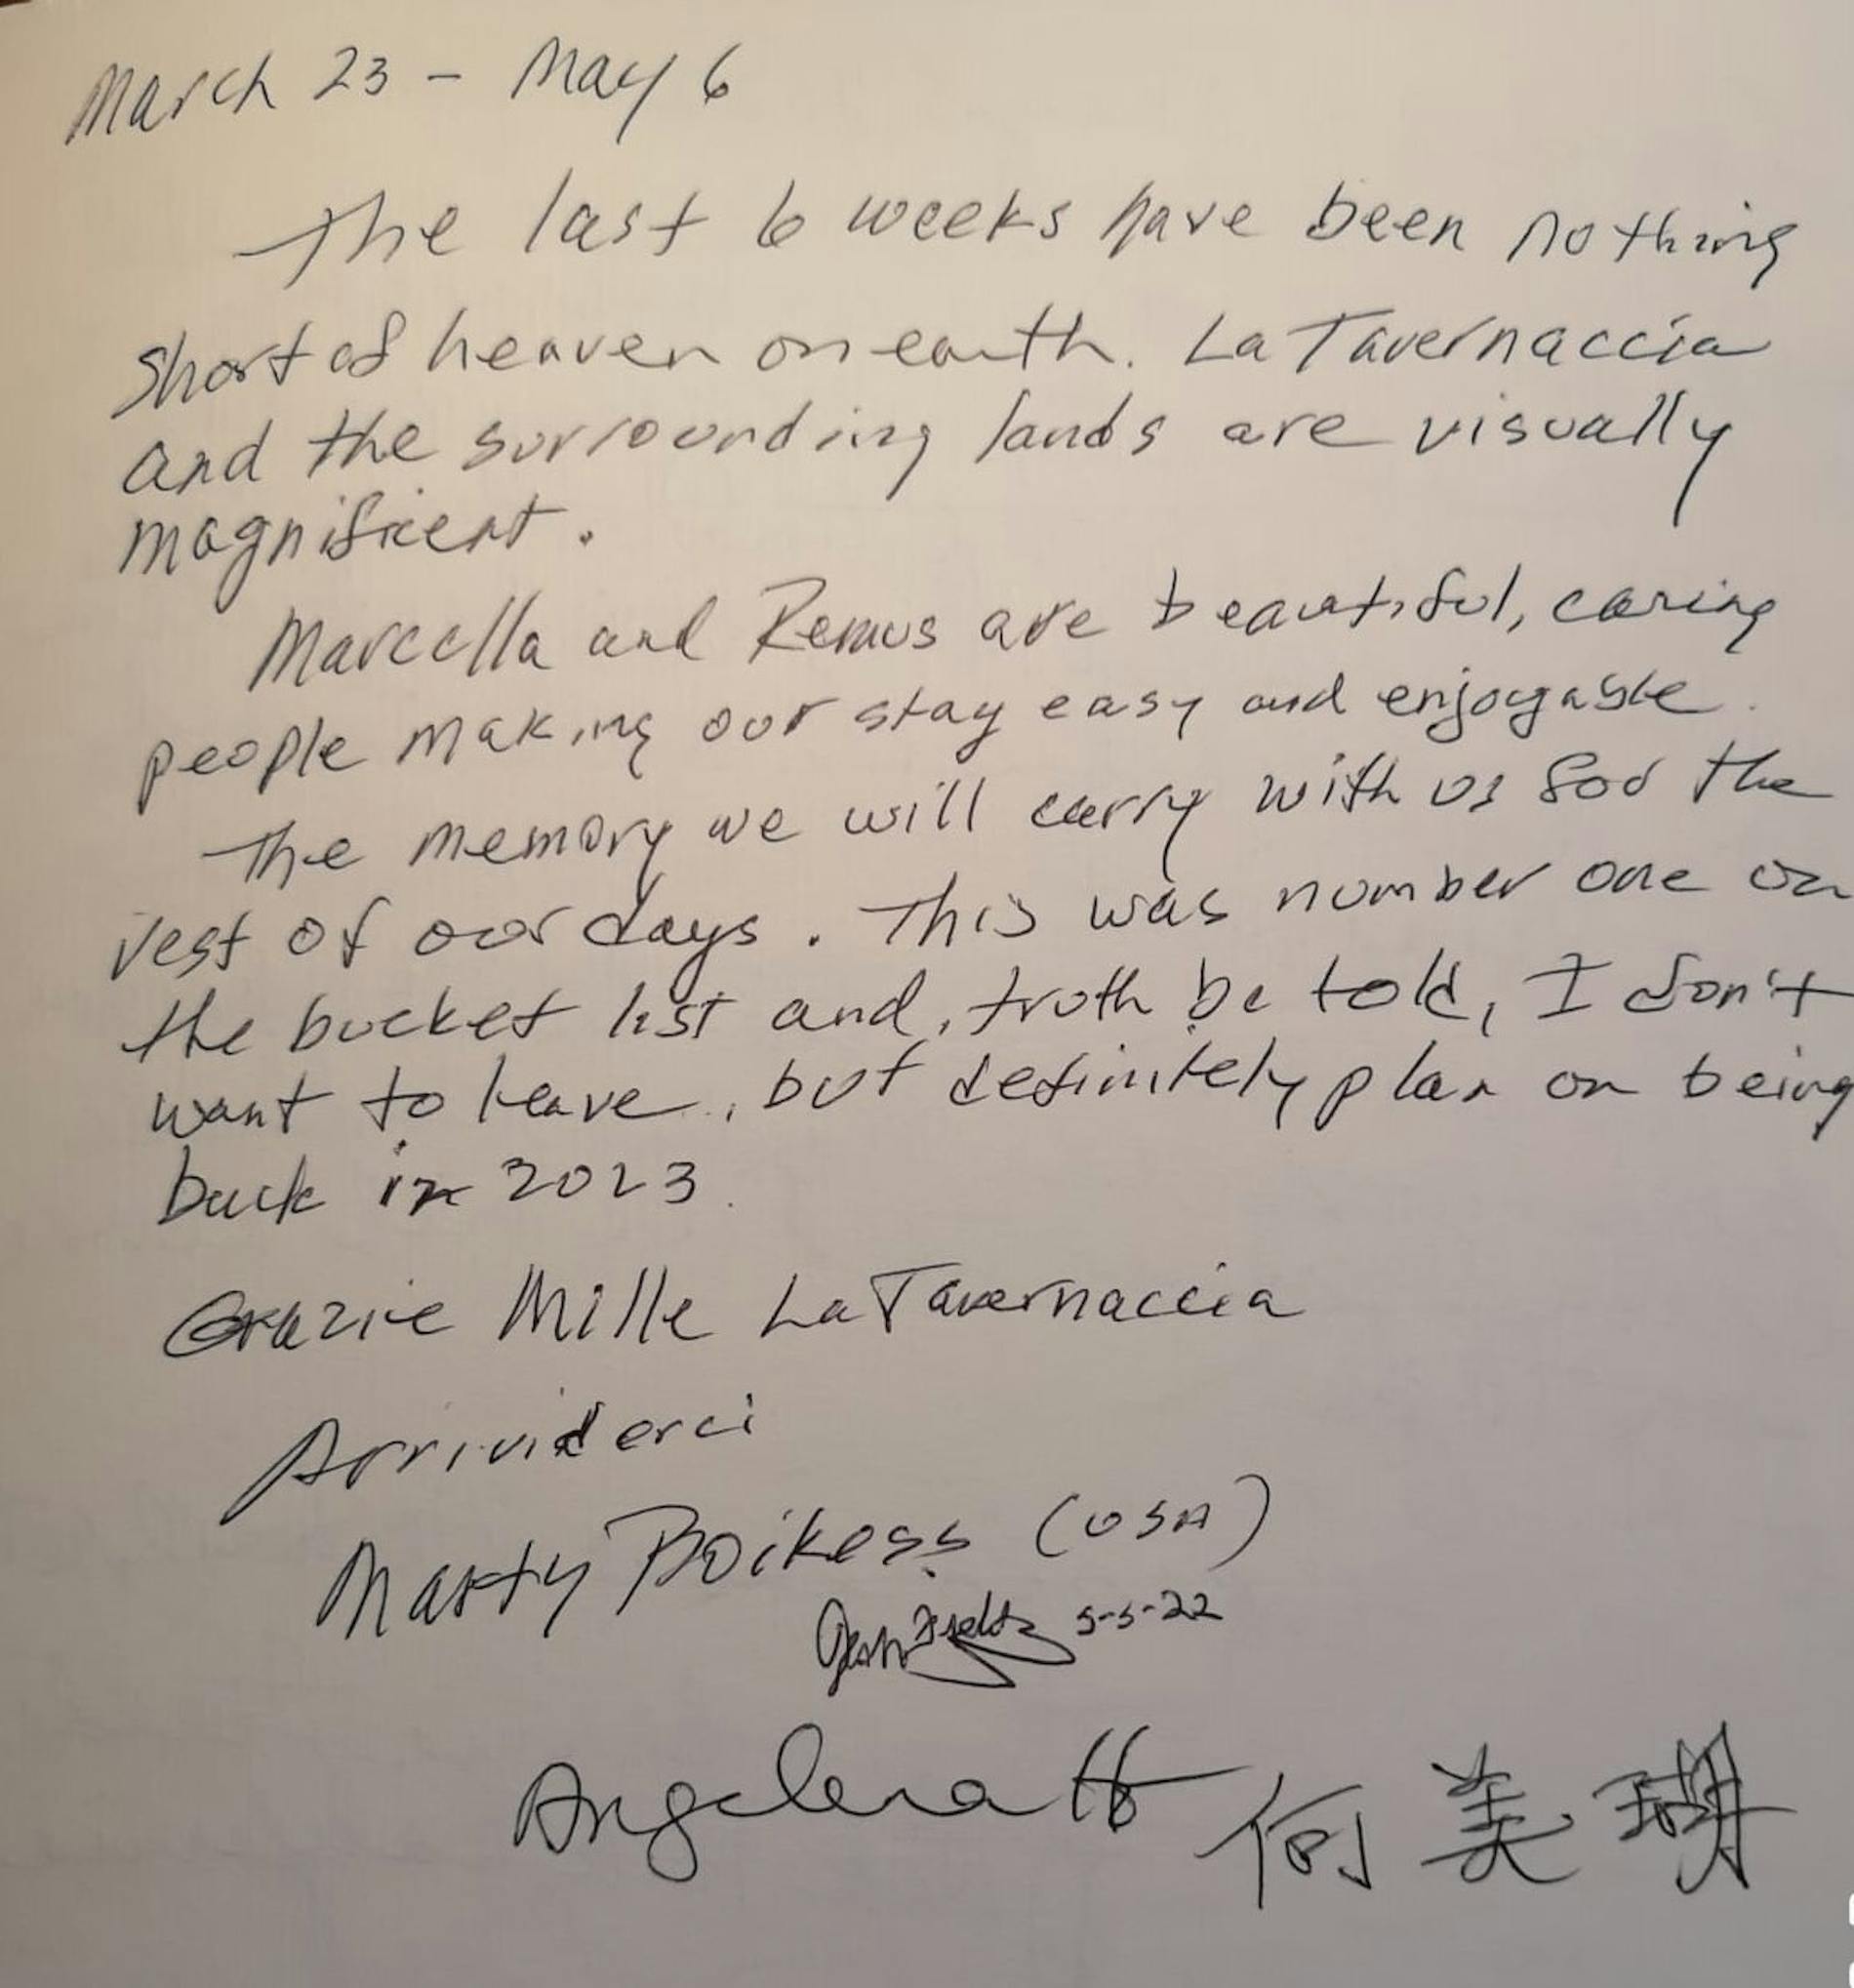 March 23 - May 6
The last 6 weeks have been nothing
short of heaven on earth. La Tavernaccia
and the surrounding lands are visually
magnificent.
Marcella and Remus are beautiful, caring
people making our stay easy and enjoyable.
The memory we will carry with us for the
rest of our days. This was number one on
the bucket list and, truth be told, I don't
want to leave, but definitely plan on being
back in 2023.
Grazie Mille La Tavernaccia
Arrividerci
Marty Boikess (USA)
5-5-22
Angelena H 何美瑚